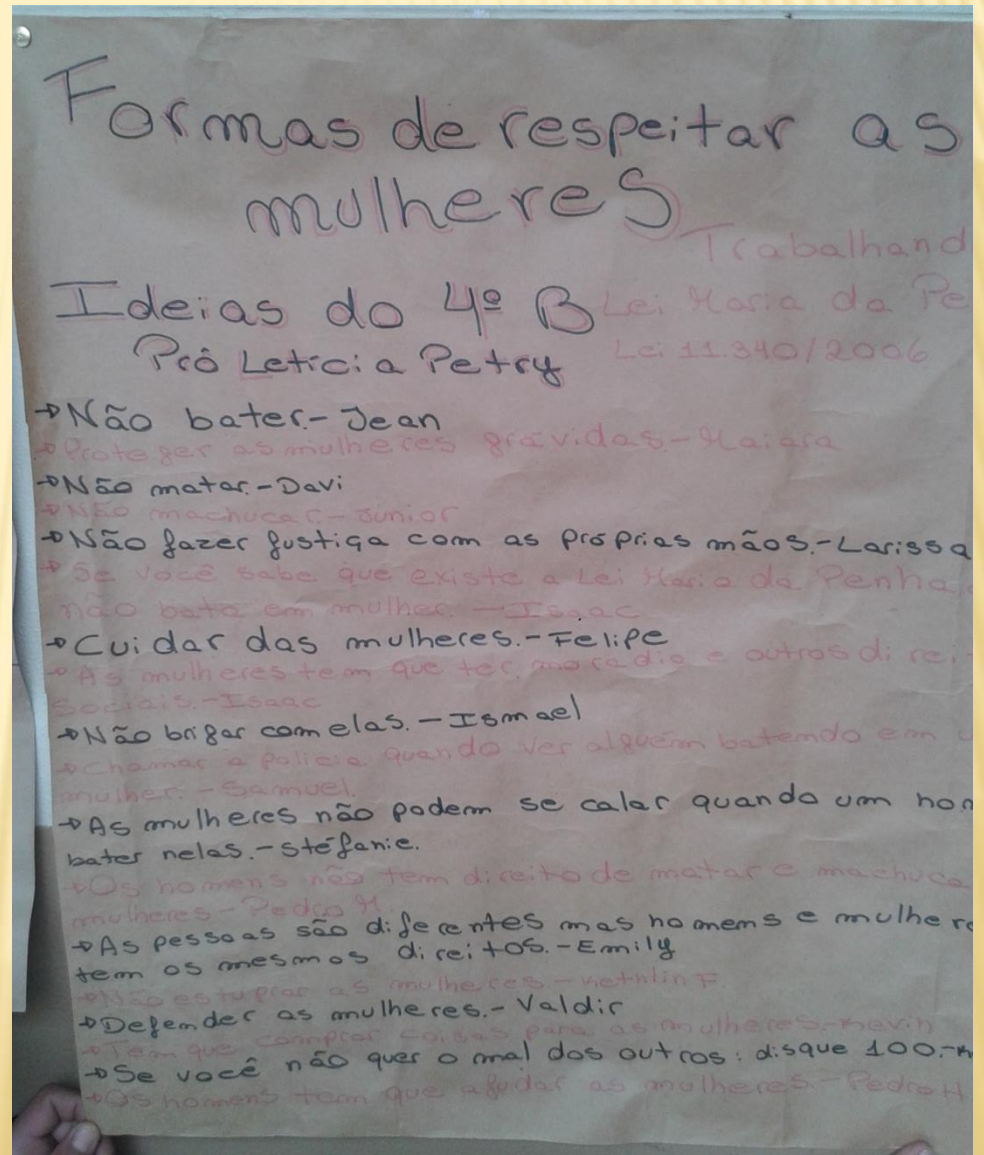 Formas de respeitar as
mulheres
Trabalhand
Ideias do 4º B Lei Maria da Pe
Prô Letícia Petry Lei 11.340/2006
→Não bater.-Jean
→Proteger as mulheres grávidas.-Maiara
→Não matar.-Davi
→Não machucar.-Junior
→Não fazer justiça com as próprias mãos.-Larissa
→Se você sabe que existe a Lei Maria da Penha,
não bata em mulher.-Isaac
→Cuidar das mulheres.-Felipe
→As mulheres tem que ter moradia e outros direi
sociais.-Isaac
→Não brigar com elas.-Ismael
→Chamar a polícia quando ver alguém batendo em
mulher.-Samuel.
→As mulheres não podem se calar quando um hom
bater nelas.-Stéfanie.
→Os homens não tem direito de matar e machuca
mulheres-Pedro H.
→As pessoas são diferentes mas homens e mulhere
tem os mesmos direitos.-Emily
→Não estuprar as mulheres-Kethlin F.
→Defender as mulheres.-Valdir
→Tem que comprar coisas para as mulheres.-Kevin
→Se você não quer o mal dos outros: disque 100.-
→Os homens tem que ajudar as mulheres.-Pedro H